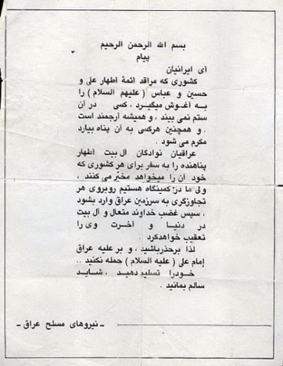 بسم الله الرحمن الرحيم
پیام
ای ایرانیان
کشوری که مراقد ائمة اطهار علی و
حسین و عباس (علیهم السلام) را
به آغوش میگیرد، کسی در آن
ستم نمی بیند، و همیشه ارجمند است
، و همچنین هرکسی به آن پناه بیارد
مکرم می شود .
عراقیان نوادگان آل بیت اطهار
پناهنده را به سفر برای هر کشوری که
خود آن را میخواهد مخیّر می کنند ،
ولی ما در کمینگاه هستیم روبروی هر
تجاوزگری به سرزمین عراق وارد بشود
، سپس غضب خداوند متعال و آل بیت
در دنیا و آخرت وی را
تعقیب خواهدکرد .
لذا برحذرباشید، و بر علیه عراق
إمام علی (علیه السلام) حمله نکنید ..
خودرا تسلیم دهید ، شاید
سالم بمانید .
ـ نیروهای مسلح عراق ـ